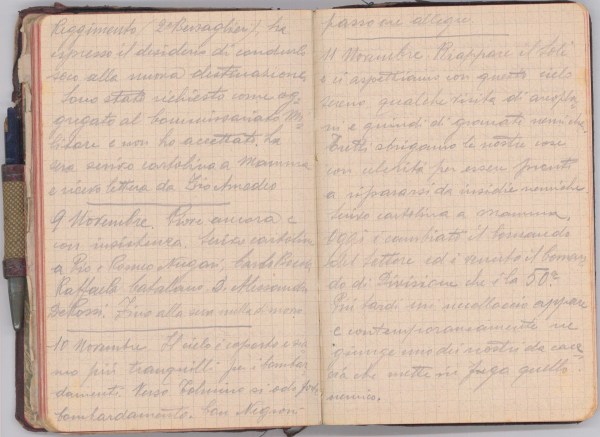 Reggimento (2° Bersaglieri), ha
espresso il desiderio di condurlo
seco alla nuova destinazione.
Sono stato richiesto come ag-
gregato al Commissariato Mi-
litare e non ho accettato. La
sera scrivo cartolina a Mamma
e ricevo lettera da Zio Amedeo
9 Novembre. Piove ancora e
con insistenza. Scrivo cartoline
a Pio e Romeo
Raffaele Catalano, D. Alessandro
De Rossi. Fino alla sera nulla di nuovo
10 Novembre. Il cielo è coperto e sia-
mo più tranquilli per i bombar-
damenti. Verso Tolmino si ode forte
bombardamento. Con Negron-
passo ore allegre
11 Novembre. Riappare il Sole
e ci aspettiamo con questo cielo
sereno qualche visita di aeropla-
ni e quindi di granate nemiche.
Tutti sbrighiamo le nostre cose
con celerità per essere pronti
a ripararsi da insidie nemiche
Scrivo cartolina a mamma.
Oggi è cambiato il Comando
del Settore ed è venuto il Coman-
do di Divisione che è la 50ª
Più tardi un uccellaccio appare
e contemporaneamente ne
giunge uno dei nostri da cac-
cia che mette in fuga quello
nemico.